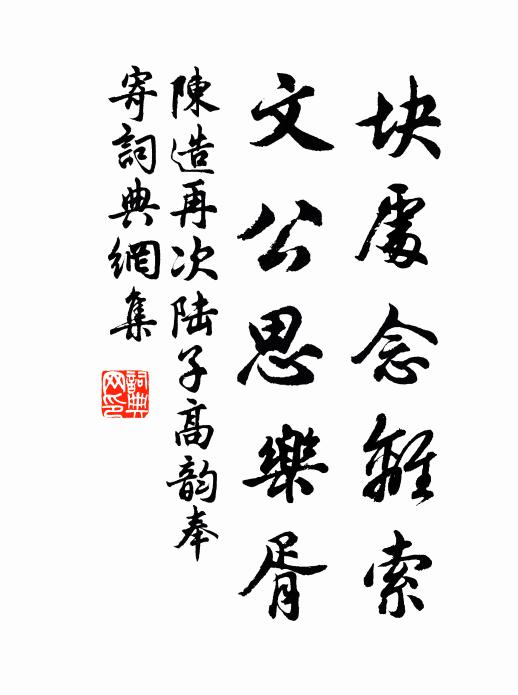 块處念離索
文公思樂胥
陳造再次陆子高韵奉
寄詞典網集
詞典网印